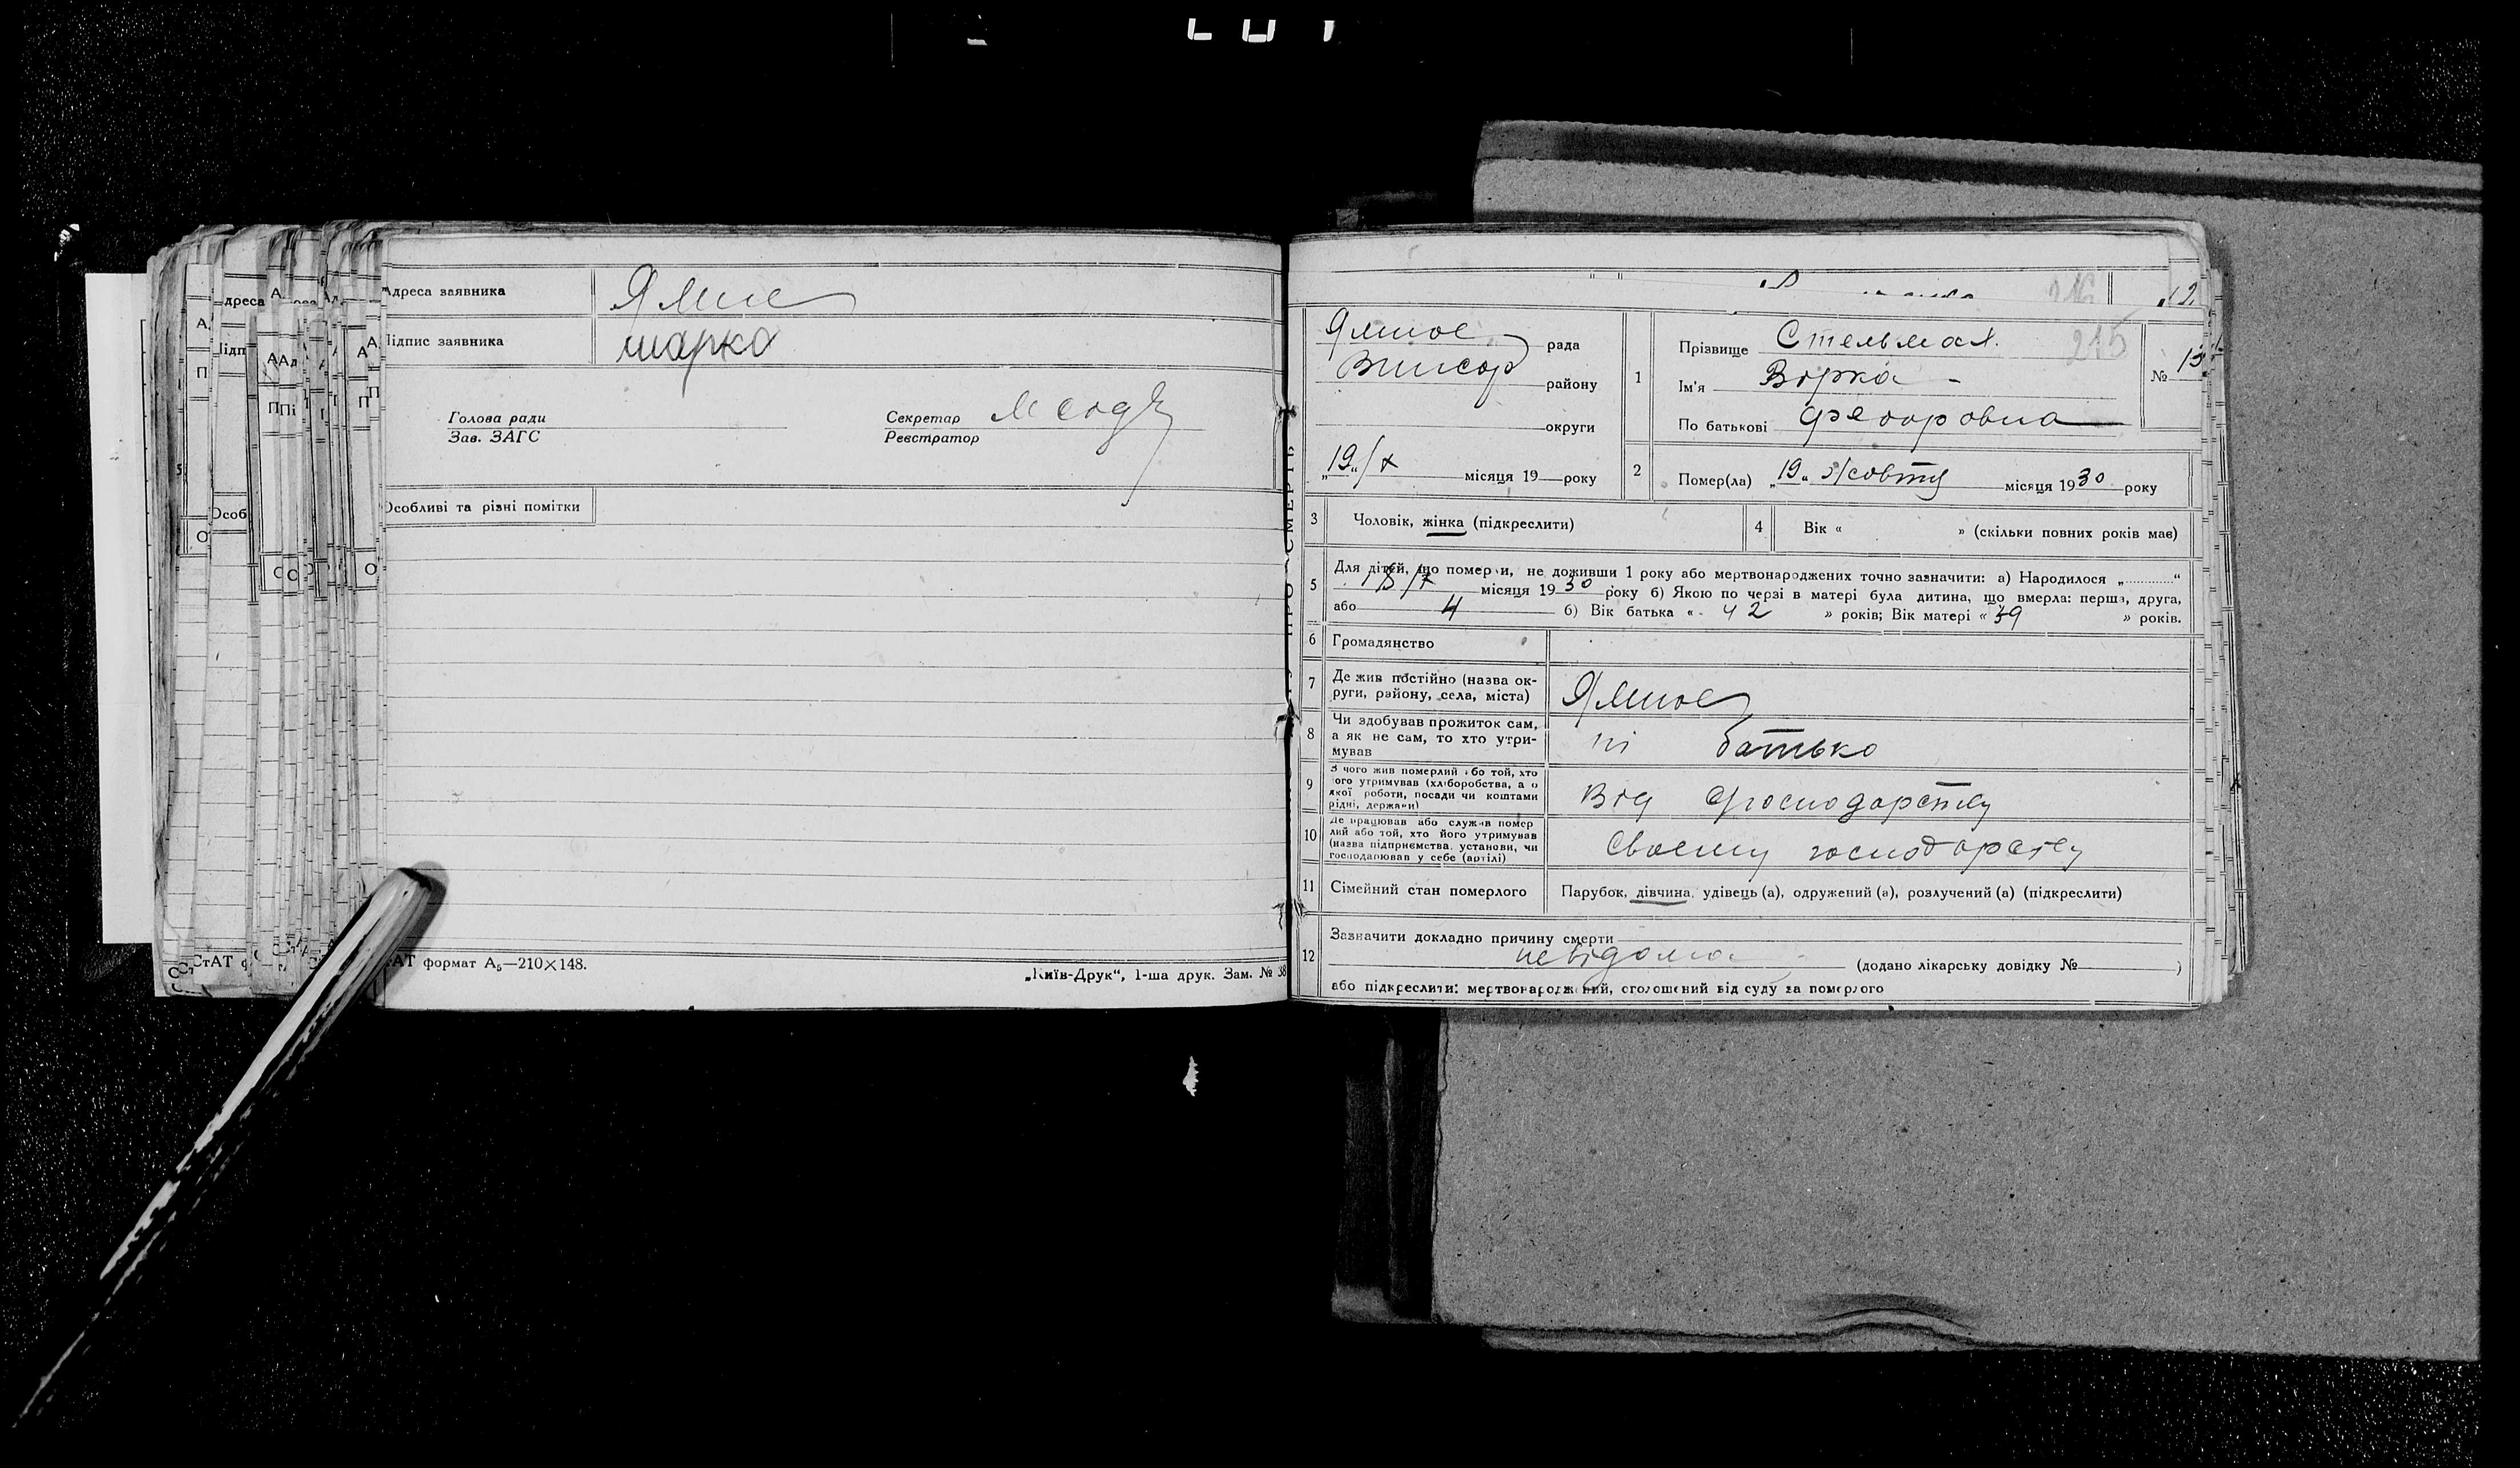 Адреса заявника
Підпис заявника марко
Голова ради
Зав. ЗАГС
Секретар
Реєстратор
Особливі та різні помітки
СтАТ формат А₅—210×148.
„Київ-Друк“, 1-ша друк. Зам. № 38
216
12
215
рада
району
округи
„19„/X місяця 19 року
1
Прізвище Стельмах.
Ім'я Вірка
По батькові Федоровна
№ 13
2
Помер(ла) „19„ Жовтня місяця 1930 року
3 Чоловік, жінка (підкреслити)
4 Вік « » (скільки повних років має)
5 Для дітей, що померли, не доживши 1 року або мертвонароджених точно зазначити: а) Народилося „.............“
18/X місяця 1930 року б) Якою по черзі в матері була дитина, що вмерла: перша, друга,
або 4 б) Вік батька « 42 » років; Вік матері « 39 » років.
6 Громадянство
7 Де жив постійно (назва ок-
руги, району, села, міста)
8 Чи здобував прожиток сам,
а як не сам, то хто утри-
мував
ні батько
9 З чого жив померлий або той, хто
його утримував (хліборобства, а о
якої роботи, посади чи коштами
рідні, держави)
Від господарству
10 Де працював або служив помер
лий або той, хто його утримував
(назва підприємства, установи, чи
господарював у себе (артілі)
Своєму господарству
11 Сімейний стан померлого
Парубок, дівчина, удівець (а), одружений (а), розлучений (а) (підкреслити)
12 Зазначити докладно причину смерти
невідома (додано лікарську довідку № )
або підкреслити: мертвонароджений, оголошений від суду за померлого